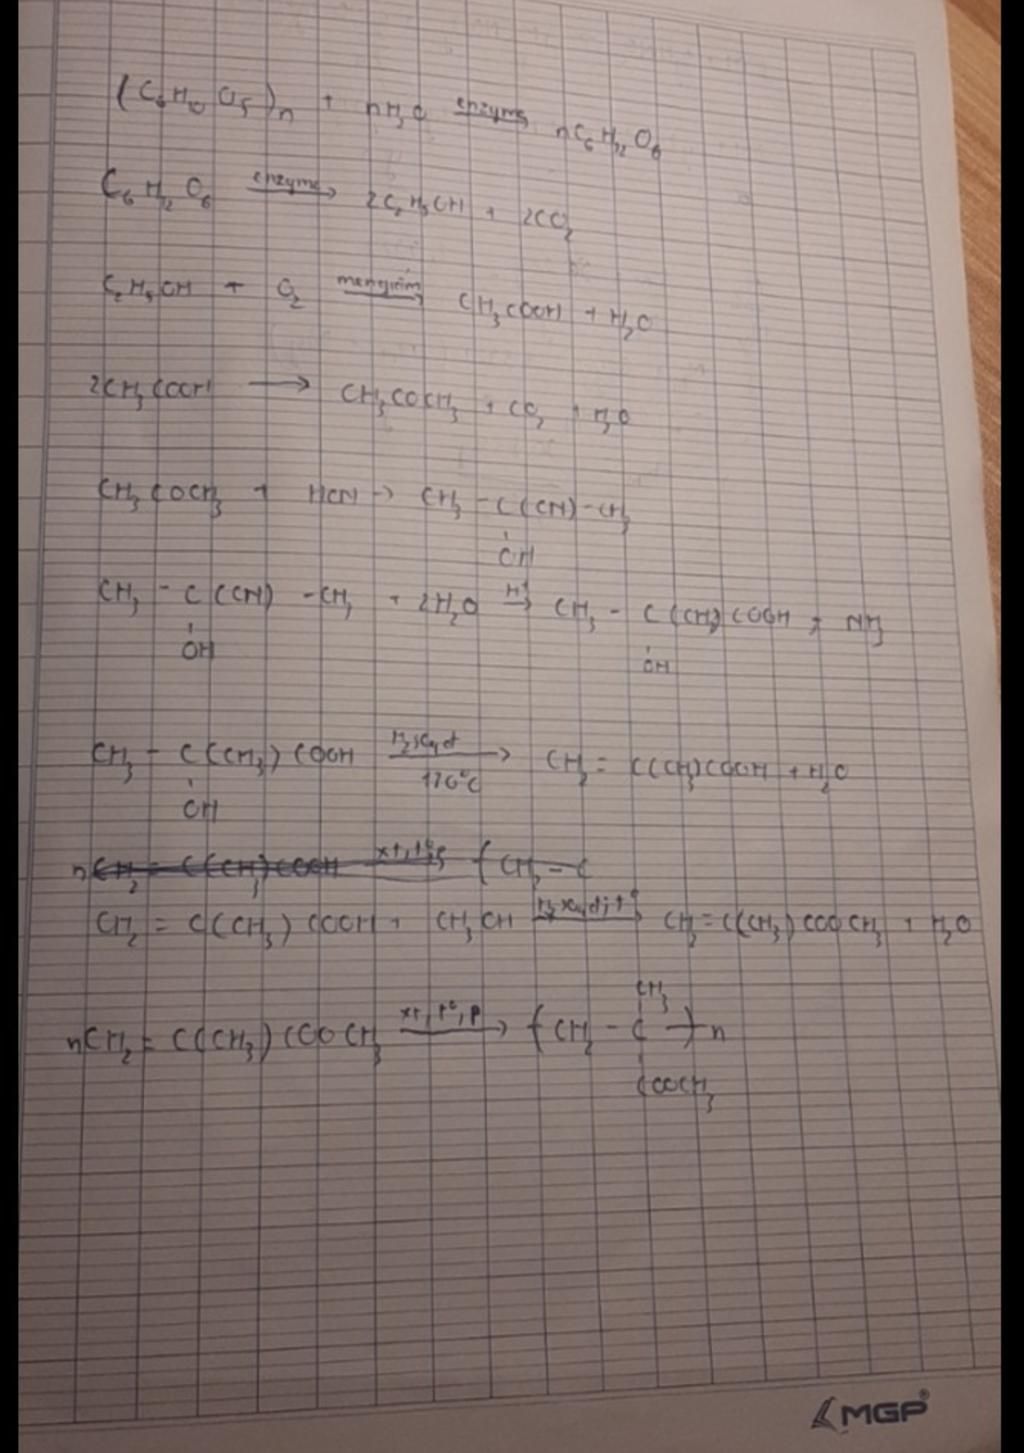 (C₆H₁₀O₅)n + nH₂O enzyme→ nC₆H₁₂O₆
C₆H₁₂O₆ enzyme→ 2C₂H₅OH + 2CO₂
C₂H₅OH + O₂ men giấm→ CH₃COOH + H₂O
2CH₃COOH → CH₃COCH₃ + CO₂ + H₂O
CH₃COCH₃ + HCN → CH₃ - C(CN) - CH₃
OH
CH₃ - C(CN) - CH₃ + 2H₂O H⁺→ CH₃ - C(CH₃)COOH + NH₃
OH OH
CH₃ - C(CH₃)COOH H₂SO₄ đ→ CH₂ = C(CH₃)COOH + H₂O
170°C
OH
nCH₂ = C(CH₃)COOH xt, t°, p (CH₂ - C
CH₂ = C(CH₃)COOH + CH₃OH H₂SO₄ đ, t°→ CH₂ = C(CH₃)COOCH₃ + H₂O
CH₃
nCH₂ = C(CH₃)COOCH₃ xt, t°, p→ (CH₂ - C)n
COOCH₃
MGP